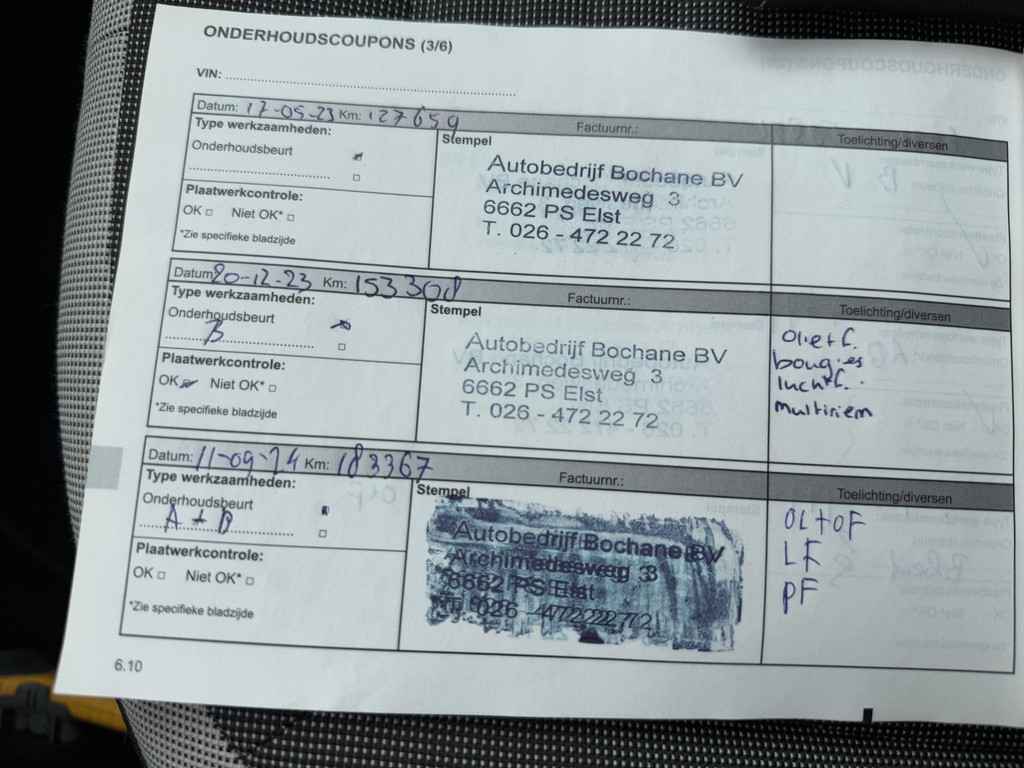 ONDERHOUDSCOUPONS (3/6)
VIN:
Datum: 17-05-23 Km: 127659 Factuurnr.: Toelichting/diversen
Type werkzaamheden:
Onderhoudsbeurt
Plaatwerkcontrole:
OK Niet OK*
*Zie specifieke bladzijde
Stempel
Autobedrijf Bochane BV
Archimedesweg 3
6662 PS Elst
T. 026 - 472 22 72
Datum: 20-12-23 Km: 153308 Factuurnr.: Toelichting/diversen
Type werkzaamheden:
Onderhoudsbeurt
B
Plaatwerkcontrole:
OK Niet OK*
*Zie specifieke bladzijde
Stempel
Autobedrijf Bochane BV
Archimedesweg 3
6662 PS Elst
T. 026 - 472 22 72
Olie+f.
bougies
luchtf.
multiriem
Datum: 11-09-24 Km: 183367 Factuurnr.: Toelichting/diversen
Type werkzaamheden:
Onderhoudsbeurt
A + B
Plaatwerkcontrole:
OK Niet OK*
*Zie specifieke bladzijde
Stempel
Autobedrijf Bochane BV
Archimedesweg 3
6662 PS Elst
T. 026
OL+OF
LF
PF
6.10